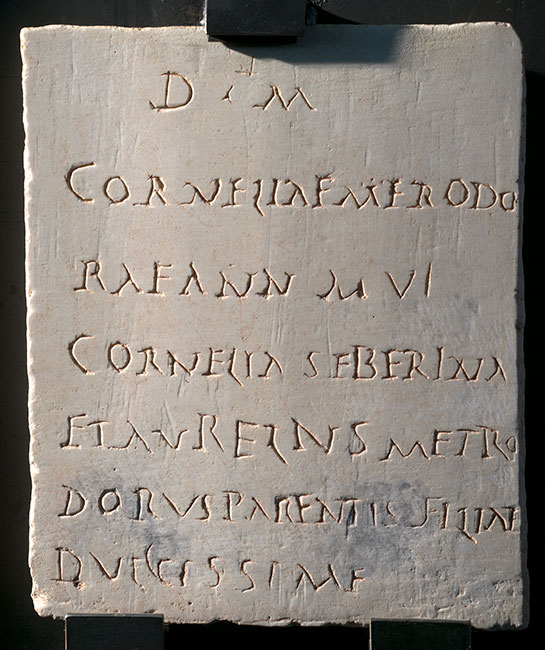 D · M
CORNELIAE MERODO
RAE ANN M VI
CORNELIA SEBERINA
ET AVRELIVS METRO
DORVS PARENTIS FILIAE
DVLCISSIME